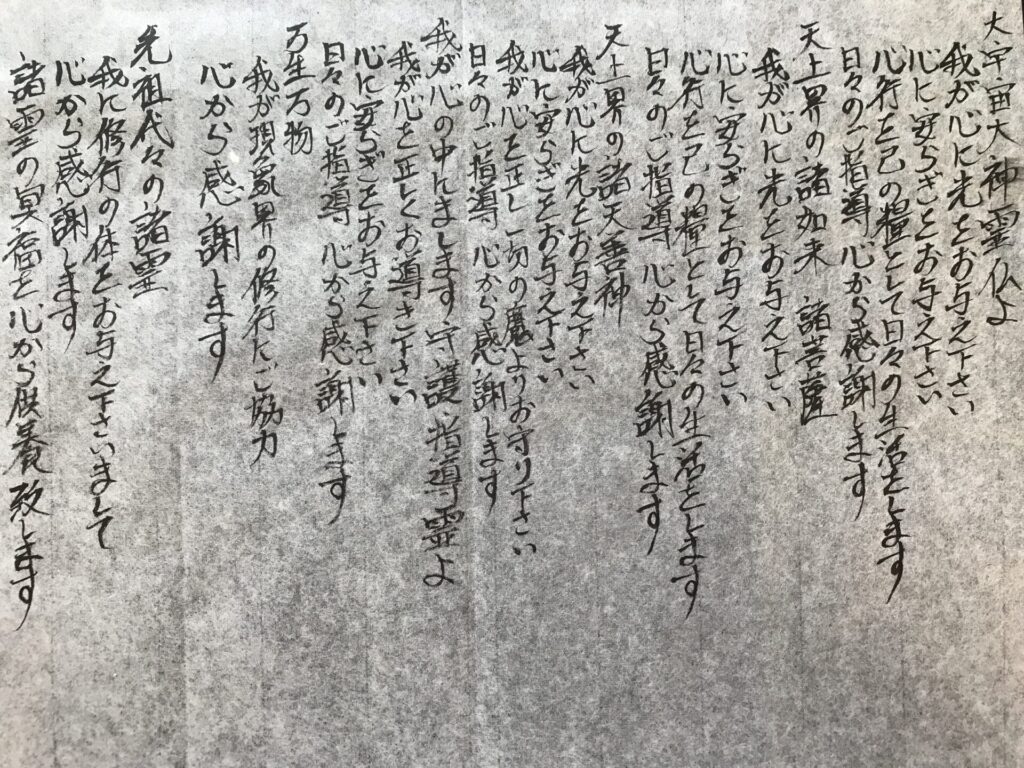 大宇宙大神霊仏よ
我が心に光をお与え下さい
心に安らぎをお与え下さい
心行を己の糧として日々の生活をします
日々のご指導 心から感謝します
天上界の諸如来 諸菩薩
我が心に光をお与え下さい
心に安らぎをお与え下さい
心行を己の糧として日々の生活をします
日々のご指導 心から感謝します
天上界の諸天善神
我が心に光をお与え下さい
心に安らぎをお与え下さい
我が心を正し一切の魔よりお守り下さい
日々のご指導 心から感謝します
我が心の中にまします守護・指導霊よ
我が心を正しくお導き下さい
心に安らぎをお与え下さい
日々のご指導 心から感謝します
万生万物
我が現象界の修行にご協力
心から感謝します
先祖代々の諸霊
我に修行の体をお与え下さいまして
心から感謝します
諸霊の冥福を、心から供養致します